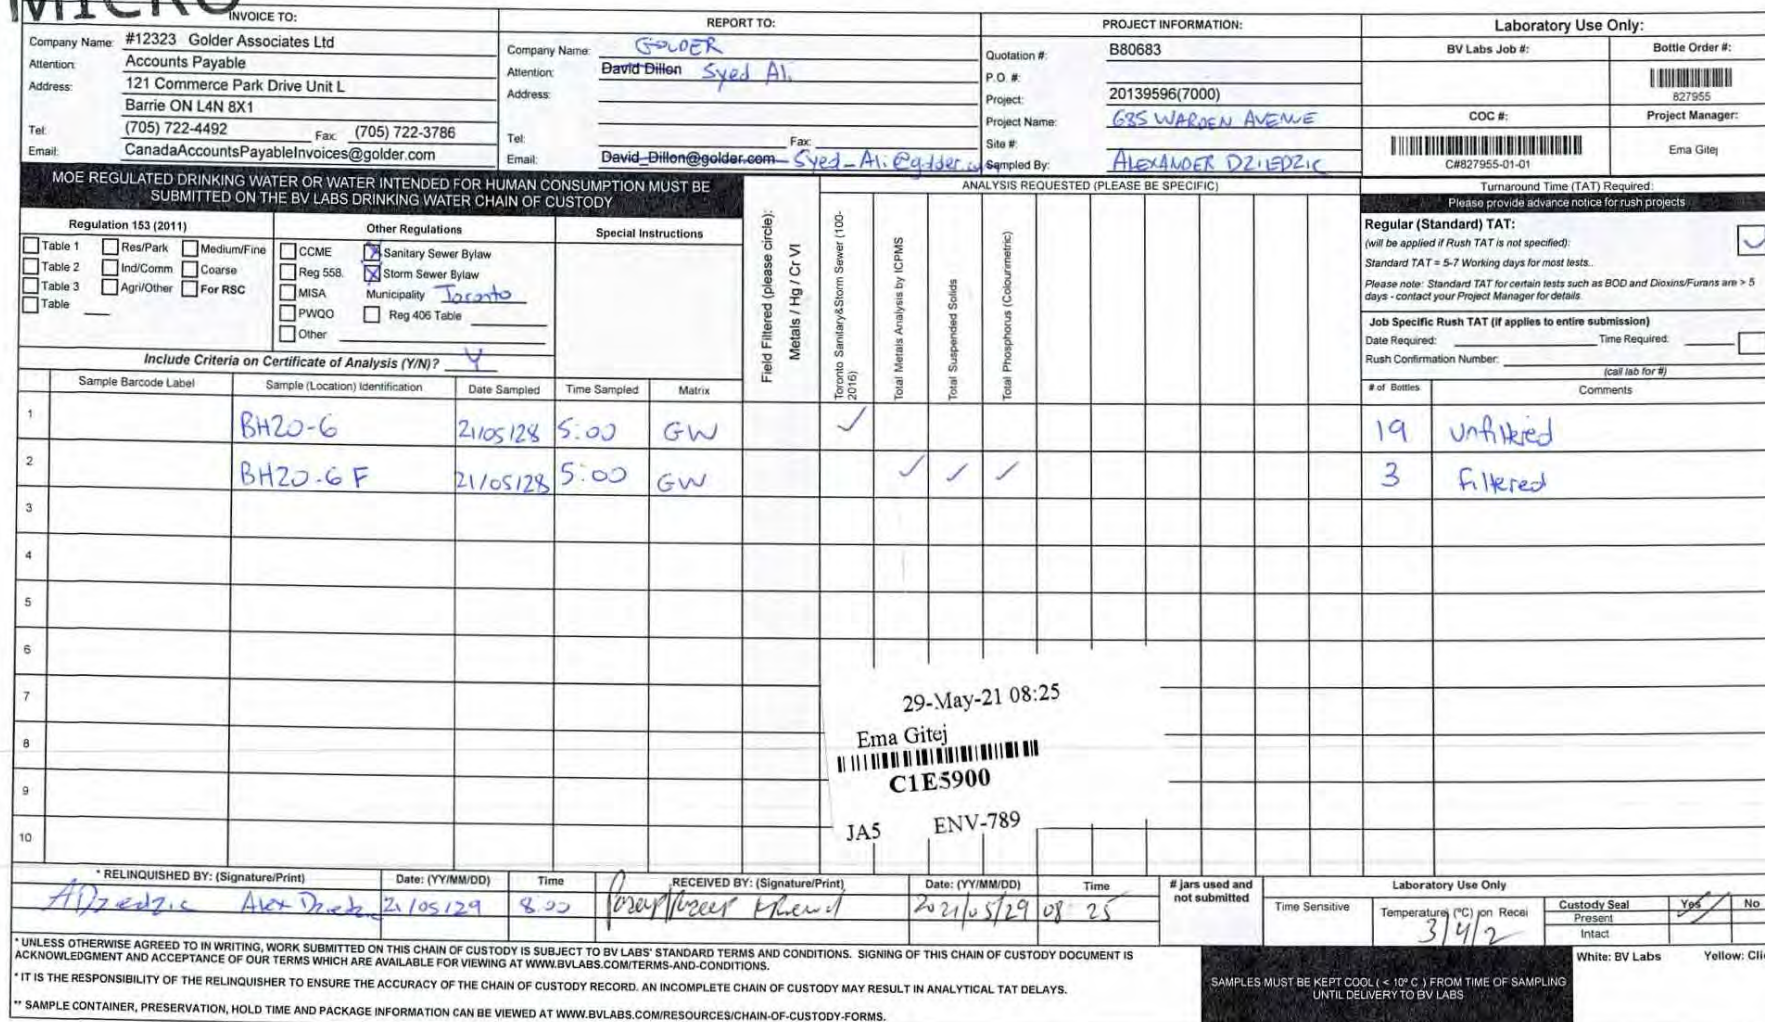 MICRO
INVOICE TO:
Company Name: #12323 Golder Associates Ltd
Attention: Accounts Payable
Address: 121 Commerce Park Drive Unit L
Barrie ON L4N 8X1
Tel: (705) 722-4492 Fax: (705) 722-3786
Email: CanadaAccountsPayableInvoices@golder.com
REPORT TO:
Company Name: GOLDER
Attention: David Dillon Syed Ali
Address:
Tel: Fax:
Email: David_Dillon@golder.com Syed_Ali@golder.
PROJECT INFORMATION:
Quotation #: B80683
P.O. #:
Project: 20139596(7000)
Project Name: 635 WARDEN AVENUE
Site #:
Sampled By: ALEXANDER DZIEDZIC
Laboratory Use Only:
BV Labs Job #: Bottle Order #:
827955
COC #: Project Manager:
C#827955-01-01 Ema Gitej
MOE REGULATED DRINKING WATER OR WATER INTENDED FOR HUMAN CONSUMPTION MUST BE
SUBMITTED ON THE BV LABS DRINKING WATER CHAIN OF CUSTODY
ANALYSIS REQUESTED (PLEASE BE SPECIFIC)
Turnaround Time (TAT) Required:
Please provide advance notice for rush projects
Regulation 153 (2011)
Table 1 Res/Park Medium/Fine
Table 2 Ind/Comm Coarse
Table 3 Agri/Other For RSC
Table
Other Regulations
CCME Sanitary Sewer Bylaw
Reg 558. Storm Sewer Bylaw
MISA Municipality Toronto
PWQO Reg 406 Table
Other
Special Instructions
Include Criteria on Certificate of Analysis (Y/N)? Y
Field Filtered (please circle):
Metals / Hg / Cr VI
Toronto Sanitary&Storm Sewer (100-
2016)
Total Metals Analysis by ICPMS
Total Suspended Solids
Total Phosphorus (Colourimetric)
Regular (Standard) TAT:
(will be applied if Rush TAT is not specified):
Standard TAT = 5-7 Working days for most tests..
Please note: Standard TAT for certain tests such as BOD and Dioxins/Furans are > 5
days - contact your Project Manager for details.
Job Specific Rush TAT (if applies to entire submission)
Date Required: Time Required:
Rush Confirmation Number:
(call lab for #)
Sample Barcode Label Sample (Location) Identification Date Sampled Time Sampled Matrix # of Bottles Comments
1 BH20-6 21/05/28 5:00 GW ✓ 19 unfiltered
2 BH20-6 F 21/05/28 5:00 GW ✓ ✓ ✓ 3 filtered
3
4
5
6
7
8
9
10
29-May-21 08:25
Ema Gitej
C1E5900
JA5 ENV-789
* RELINQUISHED BY: (Signature/Print) Date: (YY/MM/DD) Time RECEIVED BY: (Signature/Print) Date: (YY/MM/DD) Time
ADziedzic Alex 21/05/29 8:00 2021/05/29 08 25
# jars used and
not submitted
Laboratory Use Only
Time Sensitive
Temperature (°C) on Recei
3/4/2
Custody Seal Yes No
Present
Intact
* UNLESS OTHERWISE AGREED TO IN WRITING, WORK SUBMITTED ON THIS CHAIN OF CUSTODY IS SUBJECT TO BV LABS' STANDARD TERMS AND CONDITIONS. SIGNING OF THIS CHAIN OF CUSTODY DOCUMENT IS
ACKNOWLEDGMENT AND ACCEPTANCE OF OUR TERMS WHICH ARE AVAILABLE FOR VIEWING AT WWW.BVLABS.COM/TERMS-AND-CONDITIONS.
* IT IS THE RESPONSIBILITY OF THE RELINQUISHER TO ENSURE THE ACCURACY OF THE CHAIN OF CUSTODY RECORD. AN INCOMPLETE CHAIN OF CUSTODY MAY RESULT IN ANALYTICAL TAT DELAYS.
** SAMPLE CONTAINER, PRESERVATION, HOLD TIME AND PACKAGE INFORMATION CAN BE VIEWED AT WWW.BVLABS.COM/RESOURCES/CHAIN-OF-CUSTODY-FORMS.
White: BV Labs Yellow: Cli
SAMPLES MUST BE KEPT COOL ( < 10° C ) FROM TIME OF SAMPLING
UNTIL DELIVERY TO BV LABS